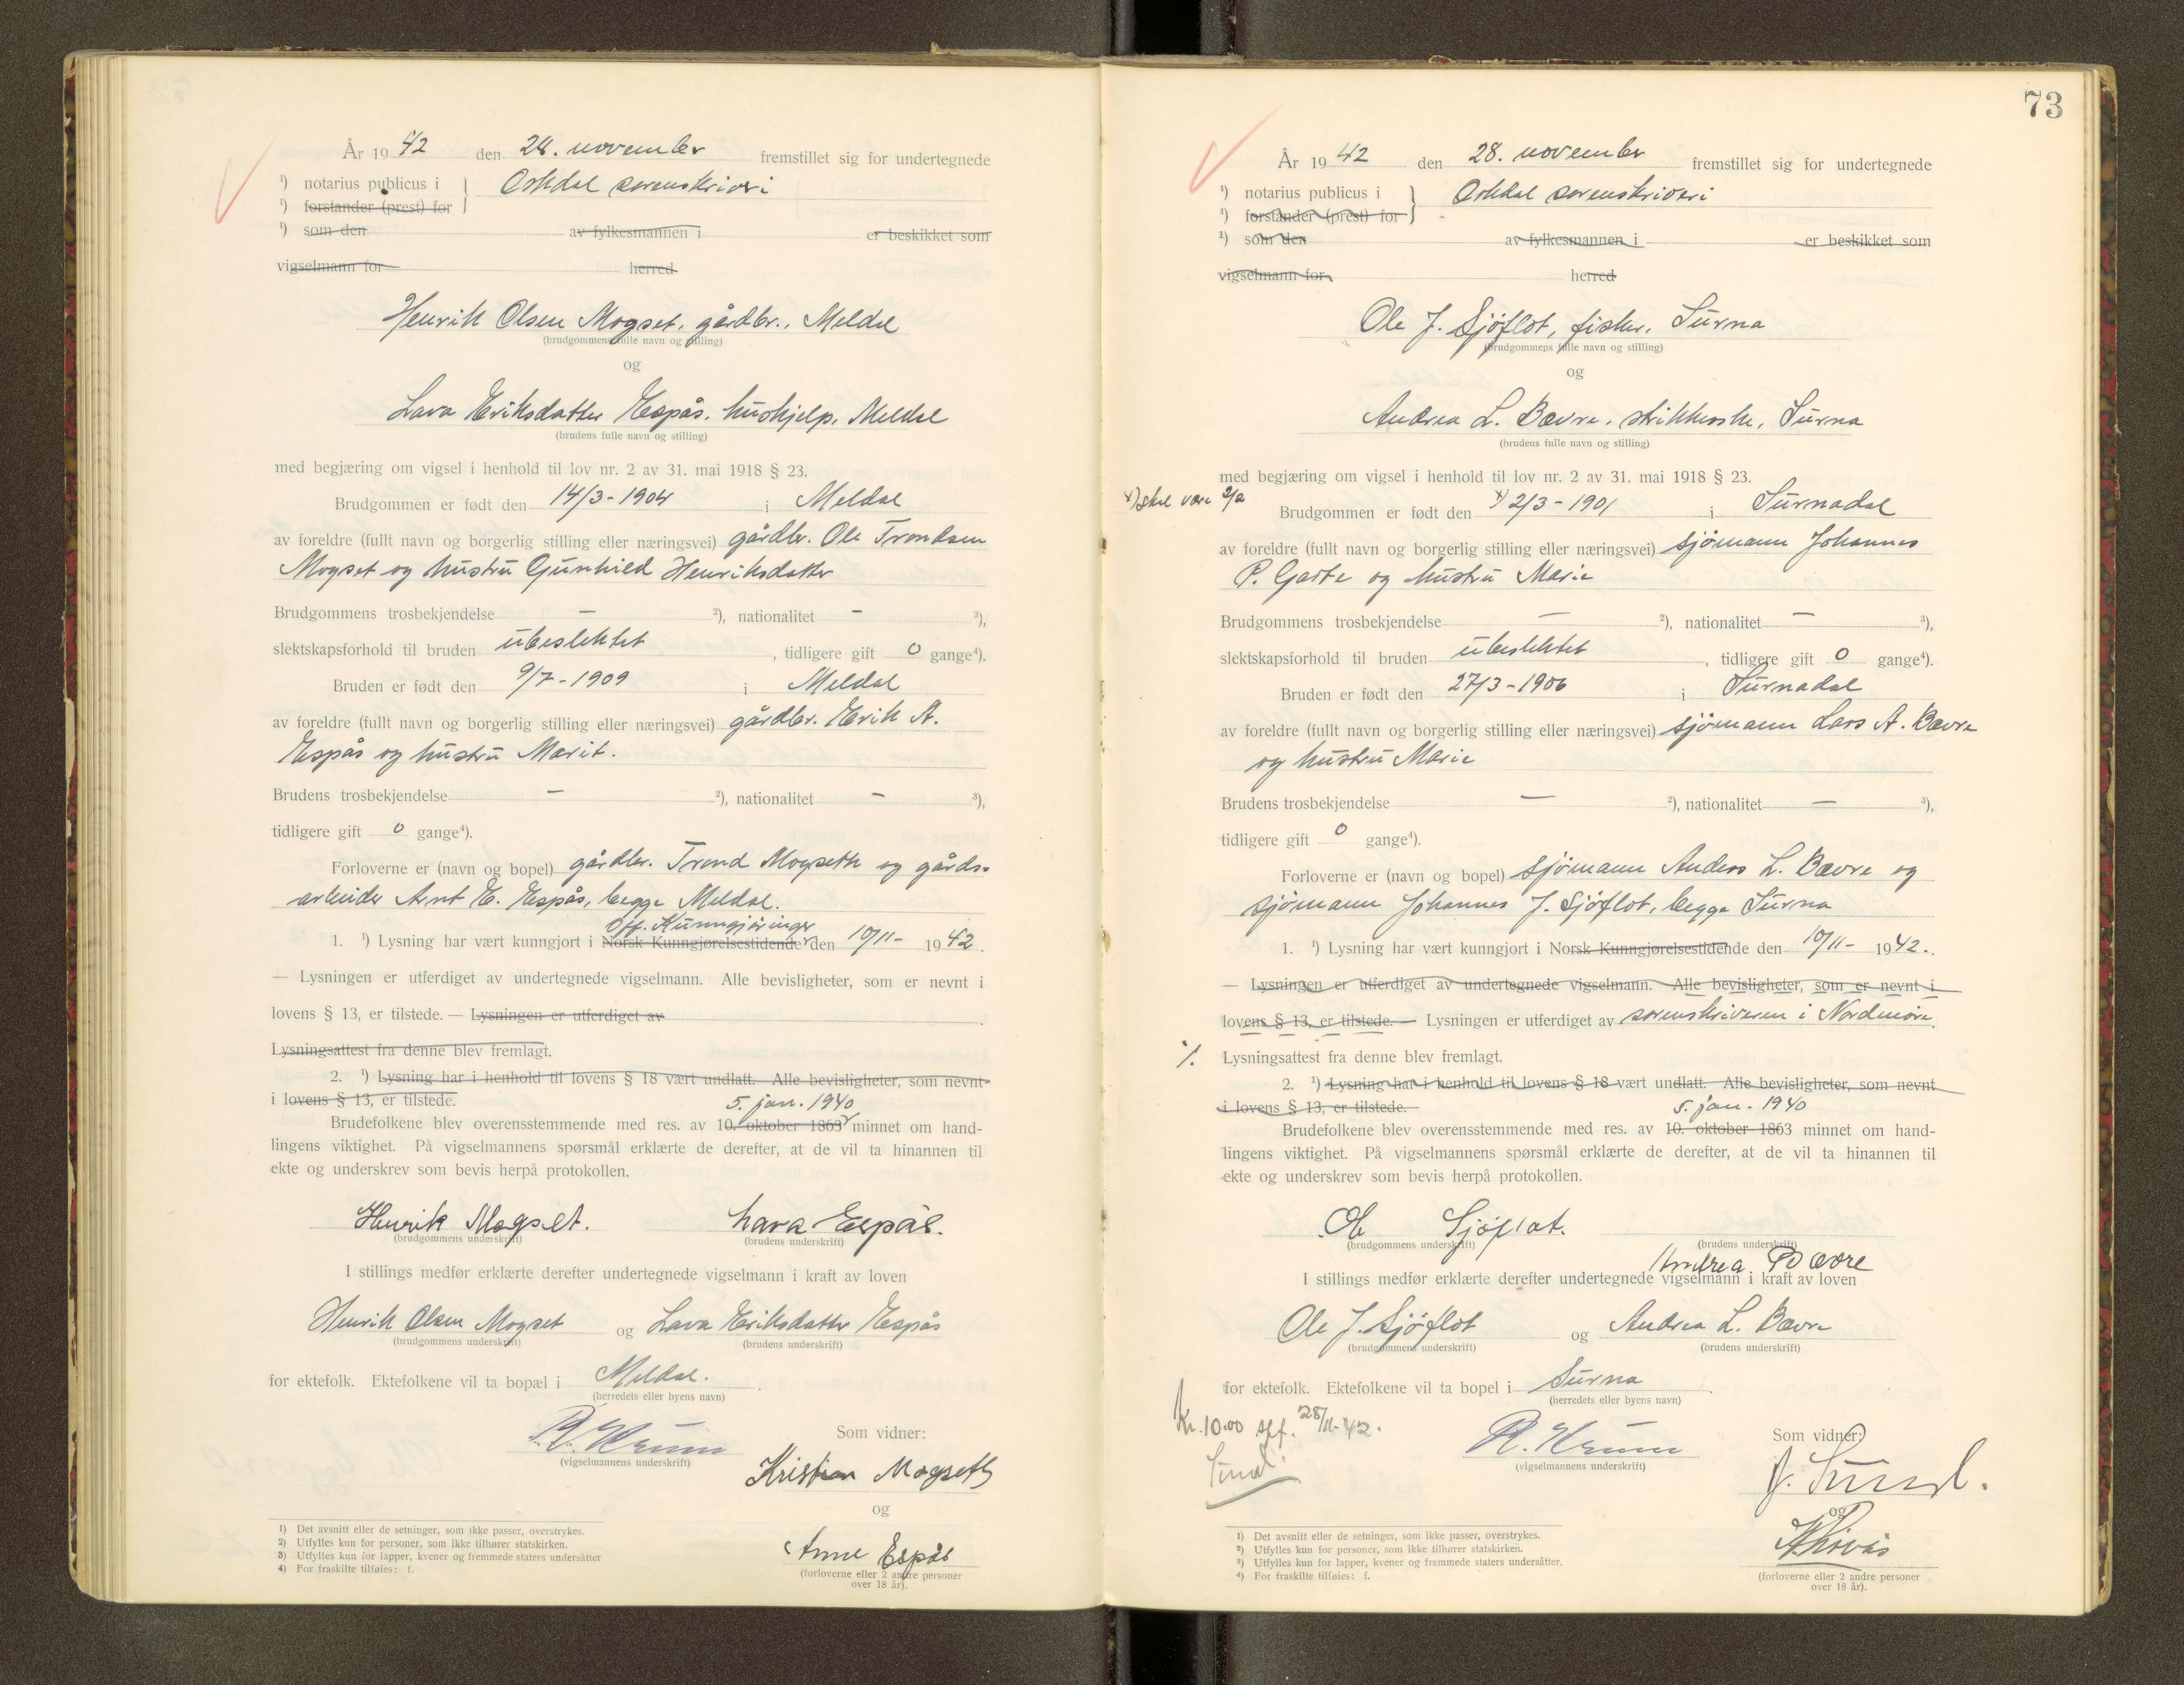 År 1942 den 28. november fremstillet sig for undertegnede
¹) notarius publicus i } Orkdal sorenskriveri
¹) forstander (prest) for
¹) som den av fylkesmannen i er beskikket som
vigselmann for herred
Henrik Olsen Mogset, gårdbr., Meldal
(brudgommens fulle navn og stilling)
og
Lava Eriksdatter Espås, hushjelp, Meldal
(brudens fulle navn og stilling)
med begjæring om vigsel i henhold til lov nr. 2 av 31. mai 1918 § 23.
Brudgommen er født den 14/3-1904 i Meldal
av foreldre (fullt navn og borgerlig stilling eller næringsvei) gårdbr. Ole Trondsen
Mogset og hustru Gunhild Henriksdatter
Brudgommens trosbekjendelse – ²), nationalitet – ³),
slektskapsforhold til bruden ubeslektet, tidligere gift 0 gange⁴).
Bruden er født den 9/7-1909 i Meldal
av foreldre (fullt navn og borgerlig stilling eller næringsvei) gårdbr. Erik A.
Espås og hustru Marit.
Brudens trosbekjendelse – ²), nationalitet – ³),
tidligere gift 0 gange⁴).
Forloverne er (navn og bopel) gårdbr. Trond Mogseth og gårds-
arbeider Arnt E. Espås, begge Meldal.
Off. Kunngjøringer
1. ¹) Lysning har vært kunngjort i Norsk Kunngjørelsestidende den 10/11- 1942.
— Lysningen er utferdiget av undertegnede vigselmann. Alle bevisligheter, som er nevnt i
lovens § 13, er tilstede. — Lysningen er utferdiget av
Lysningsattest fra denne blev fremlagt.
2. ¹) Lysning har i henhold til lovens § 18 vært undlatt. Alle bevisligheter, som nevnt
i lovens § 13, er tilstede.
5. jan. 1940
Brudefolkene blev overensstemmende med res. av 10. oktober 1863 minnet om hand-
lingens viktighet. På vigselmannens spørsmål erklærte de derefter, at de vil ta hinannen til
ekte og underskrev som bevis herpå protokollen.
Henrik Mogset. Lava Espås.
(brudgommens underskrift) (brudens underskrift)
I stillings medfør erklærte derefter undertegnede vigselmann i kraft av loven
Henrik Olsen Mogset og Lava Eriksdatter Espås
(brudgommens underskrift) (brudens underskrift)
for ektefolk. Ektefolkene vil ta bopæl i Meldal.
(herredets eller byens navn)
R. Krum
(vigselmannens underskrift)
Som vidner:
Kristian Mogseth
og
Anne Espås
(forloverne eller 2 andre personer
over 18 år).
1) Det avsnitt eller de setninger, som ikke passer, overstrykes.
2) Utfylles kun for personer, som ikke tilhører statskirken.
3) Utfylles kun for lapper, kvener og fremmede staters undersåtter
4) For fraskilte tilføies: f.
73
År 1942 den 28. november fremstillet sig for undertegnede
¹) notarius publicus i } Orkdal sorenskriveri
¹) forstander (prest) for
¹) som den av fylkesmannen i er beskikket som
vigselmann for herred
Ole J. Sjøflot, fisker, Surna
(brudgommens fulle navn og stilling)
og
Andrea L. Bævre, strikkerske, Surna
(brudens fulle navn og stilling)
med begjæring om vigsel i henhold til lov nr. 2 av 31. mai 1918 § 23.
x) skal være 2/2
Brudgommen er født den x) 2/3-1901 i Surnadal
av foreldre (fullt navn og borgerlig stilling eller næringsvei) sjømann Johannes
P. Garte og hustru Marie
Brudgommens trosbekjendelse – ²), nationalitet – ³),
slektskapsforhold til bruden ubeslektet, tidligere gift 0 gange⁴).
Bruden er født den 27/3-1906 i Surnadal
av foreldre (fullt navn og borgerlig stilling eller næringsvei) sjømann Lars A. Bævre
og hustru Marie
Brudens trosbekjendelse – ²), nationalitet – ³),
tidligere gift 0 gange⁴).
Forloverne er (navn og bopel) sjømann Anders L. Bævre og
sjømann Johannes J. Sjøflot, begge Surna
1. ¹) Lysning har vært kunngjort i Norsk Kunngjørelsestidende den 10/11- 1942.
— Lysningen er utferdiget av undertegnede vigselmann. Alle bevisligheter, som er nevnt i
lovens § 13, er tilstede. — Lysningen er utferdiget av sorenskriveren i Nordmøre.
./. Lysningsattest fra denne blev fremlagt.
2. ¹) Lysning har i henhold til lovens § 18 vært undlatt. Alle bevisligheter, som nevnt
i lovens § 13, er tilstede.
5. jan. 1940
Brudefolkene blev overensstemmende med res. av 10. oktober 1863 minnet om hand-
lingens viktighet. På vigselmannens spørsmål erklærte de derefter, at de vil ta hinannen til
ekte og underskrev som bevis herpå protokollen.
Ole Sjøflot.
(brudgommens underskrift) (brudens underskrift)
Andrea Bævre
I stillings medfør erklærte derefter undertegnede vigselmann i kraft av loven
Ole J. Sjøflot og Andrea L. Bævre
(brudgommens underskrift) (brudens underskrift)
for ektefolk. Ektefolkene vil ta bopel i Surna
(herredets eller byens navn)
Kr. 10.00 28/11-42.
Sund.
R. Krum
(vigselmannens underskrift)
Som vidner:
J. Sund.
og
(forloverne eller 2 andre personer
over 18 år).
1) Det avsnitt eller de setninger, som ikke passer, overstrykes.
2) Utfylles kun for personer, som ikke tilhører statskirken.
3) Utfylles kun for lapper, kvener og fremmede staters undersåtter.
4) For fraskilte tilføies: f.